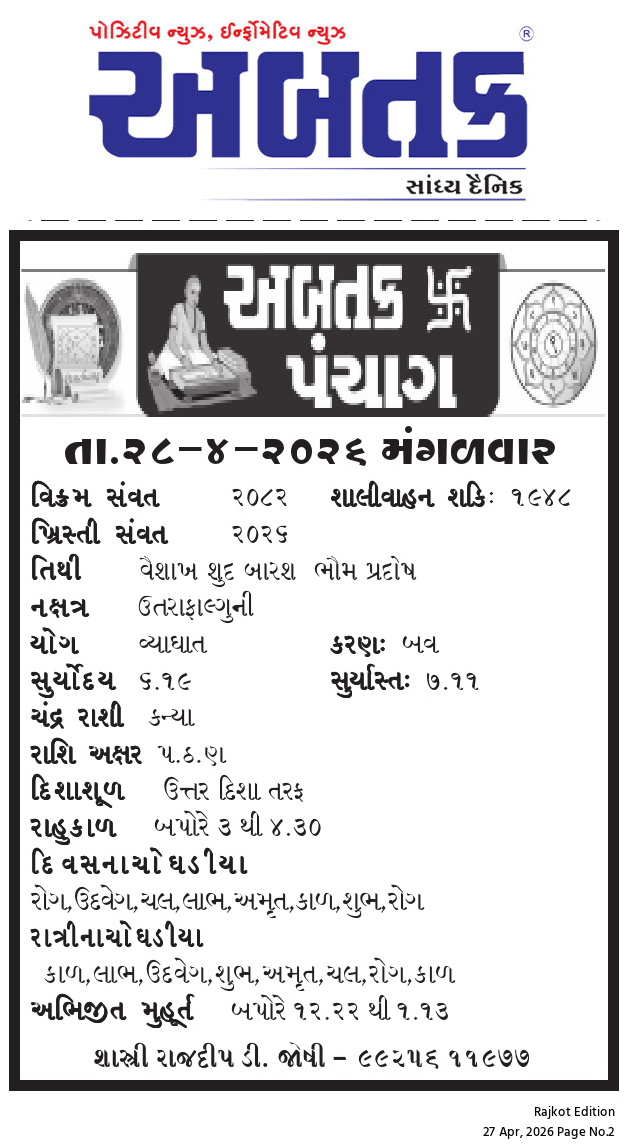 પોઝિટીવ ન્યુઝ, ઈર્ન્ફોમેટિવ ન્યુઝ
અબતક ®
સાંધ્ય દૈનિક
અબતક 卐
પંચાગ
તા.૨૮-૪-૨૦૨૬ મંગળવાર
વિક્રમ સંવત ૨૦૮૨ શાલીવાહન શકિ: ૧૯૪૮
ખ્રિસ્તી સંવત ૨૦૨૬
તિથી વૈશાખ શુદ બારશ ભૌમ પ્રદોષ
નક્ષત્ર ઉતરાફાલ્ગુની
યોગ વ્યાઘાત કરણ: બવ
સુર્યોદય ૬.૧૯ સુર્યાસ્ત: ૭.૧૧
ચંદ્ર રાશી કન્યા
રાશિ અક્ષર પ.ઠ.ણ
દિશાશૂળ ઉત્તર દિશા તરફ
રાહુકાળ બપોરે ૩ થી ૪.૩૦
દિવસનાચોઘડીયા
રોગ,ઉદવેગ,ચલ,લાભ,અમૃત,કાળ,શુભ,રોગ
રાત્રીનાચોઘડીયા
કાળ,લાભ,ઉદવેગ,શુભ,અમૃત,ચલ,રોગ,કાળ
અભિજીત મુહૂર્ત બપોરે ૧૨.૨૨ થી ૧.૧૩
શાસ્ત્રી રાજદીપ ડી. જોષી – ૯૯૨૫૬ ૧૧૯૭૭
Rajkot Edition
27 Apr, 2026 Page No.2